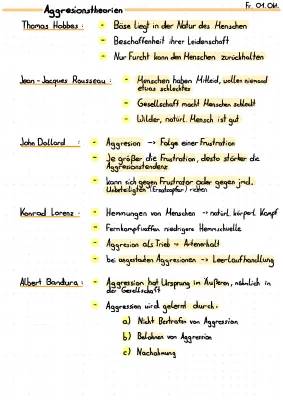 Aggresionstheorien
Fr. 01. Okt.
Thomas Hobbes : - Böse liegt in der Natur des Menschen
- Beschaffenheit ihrer Leidenschaft
- Nur Furcht kann den Menschen zurückhalten
Jean-Jacques Rousseau : - Menschen haben Mitleid, wollen niemand
etwas schlechtes
- Gesellschaft macht Menschen schlecht
- Wilder, natürl. Mensch ist gut
John Dollard : - Aggresion → Folge einer Frustration
- Je größer die Frustration, desto stärker die
Aggresionstendenz
- kann sich gegen Frustrator oder gegen jmd.
Unbeteiligten (Ersatzopfer) richten
Konrad Lorenz : - Hemmungen von Menschen → natürl. körperl. Kampf
- Fernkampfwaffen niedrigere Hemmschwelle
- Aggresion als Trieb → Artenerhalt
- bei angestauten Aggresionen → Leerlaufhandlung
Albert Bandura : - Aggression hat Ursprung im Äußeren, nämlich in
der Gesellschaft
- Aggression wird gelernt durch:
a) Nicht Bestrafen von Aggression
b) Belohnen von Aggression
c) Nachahmung